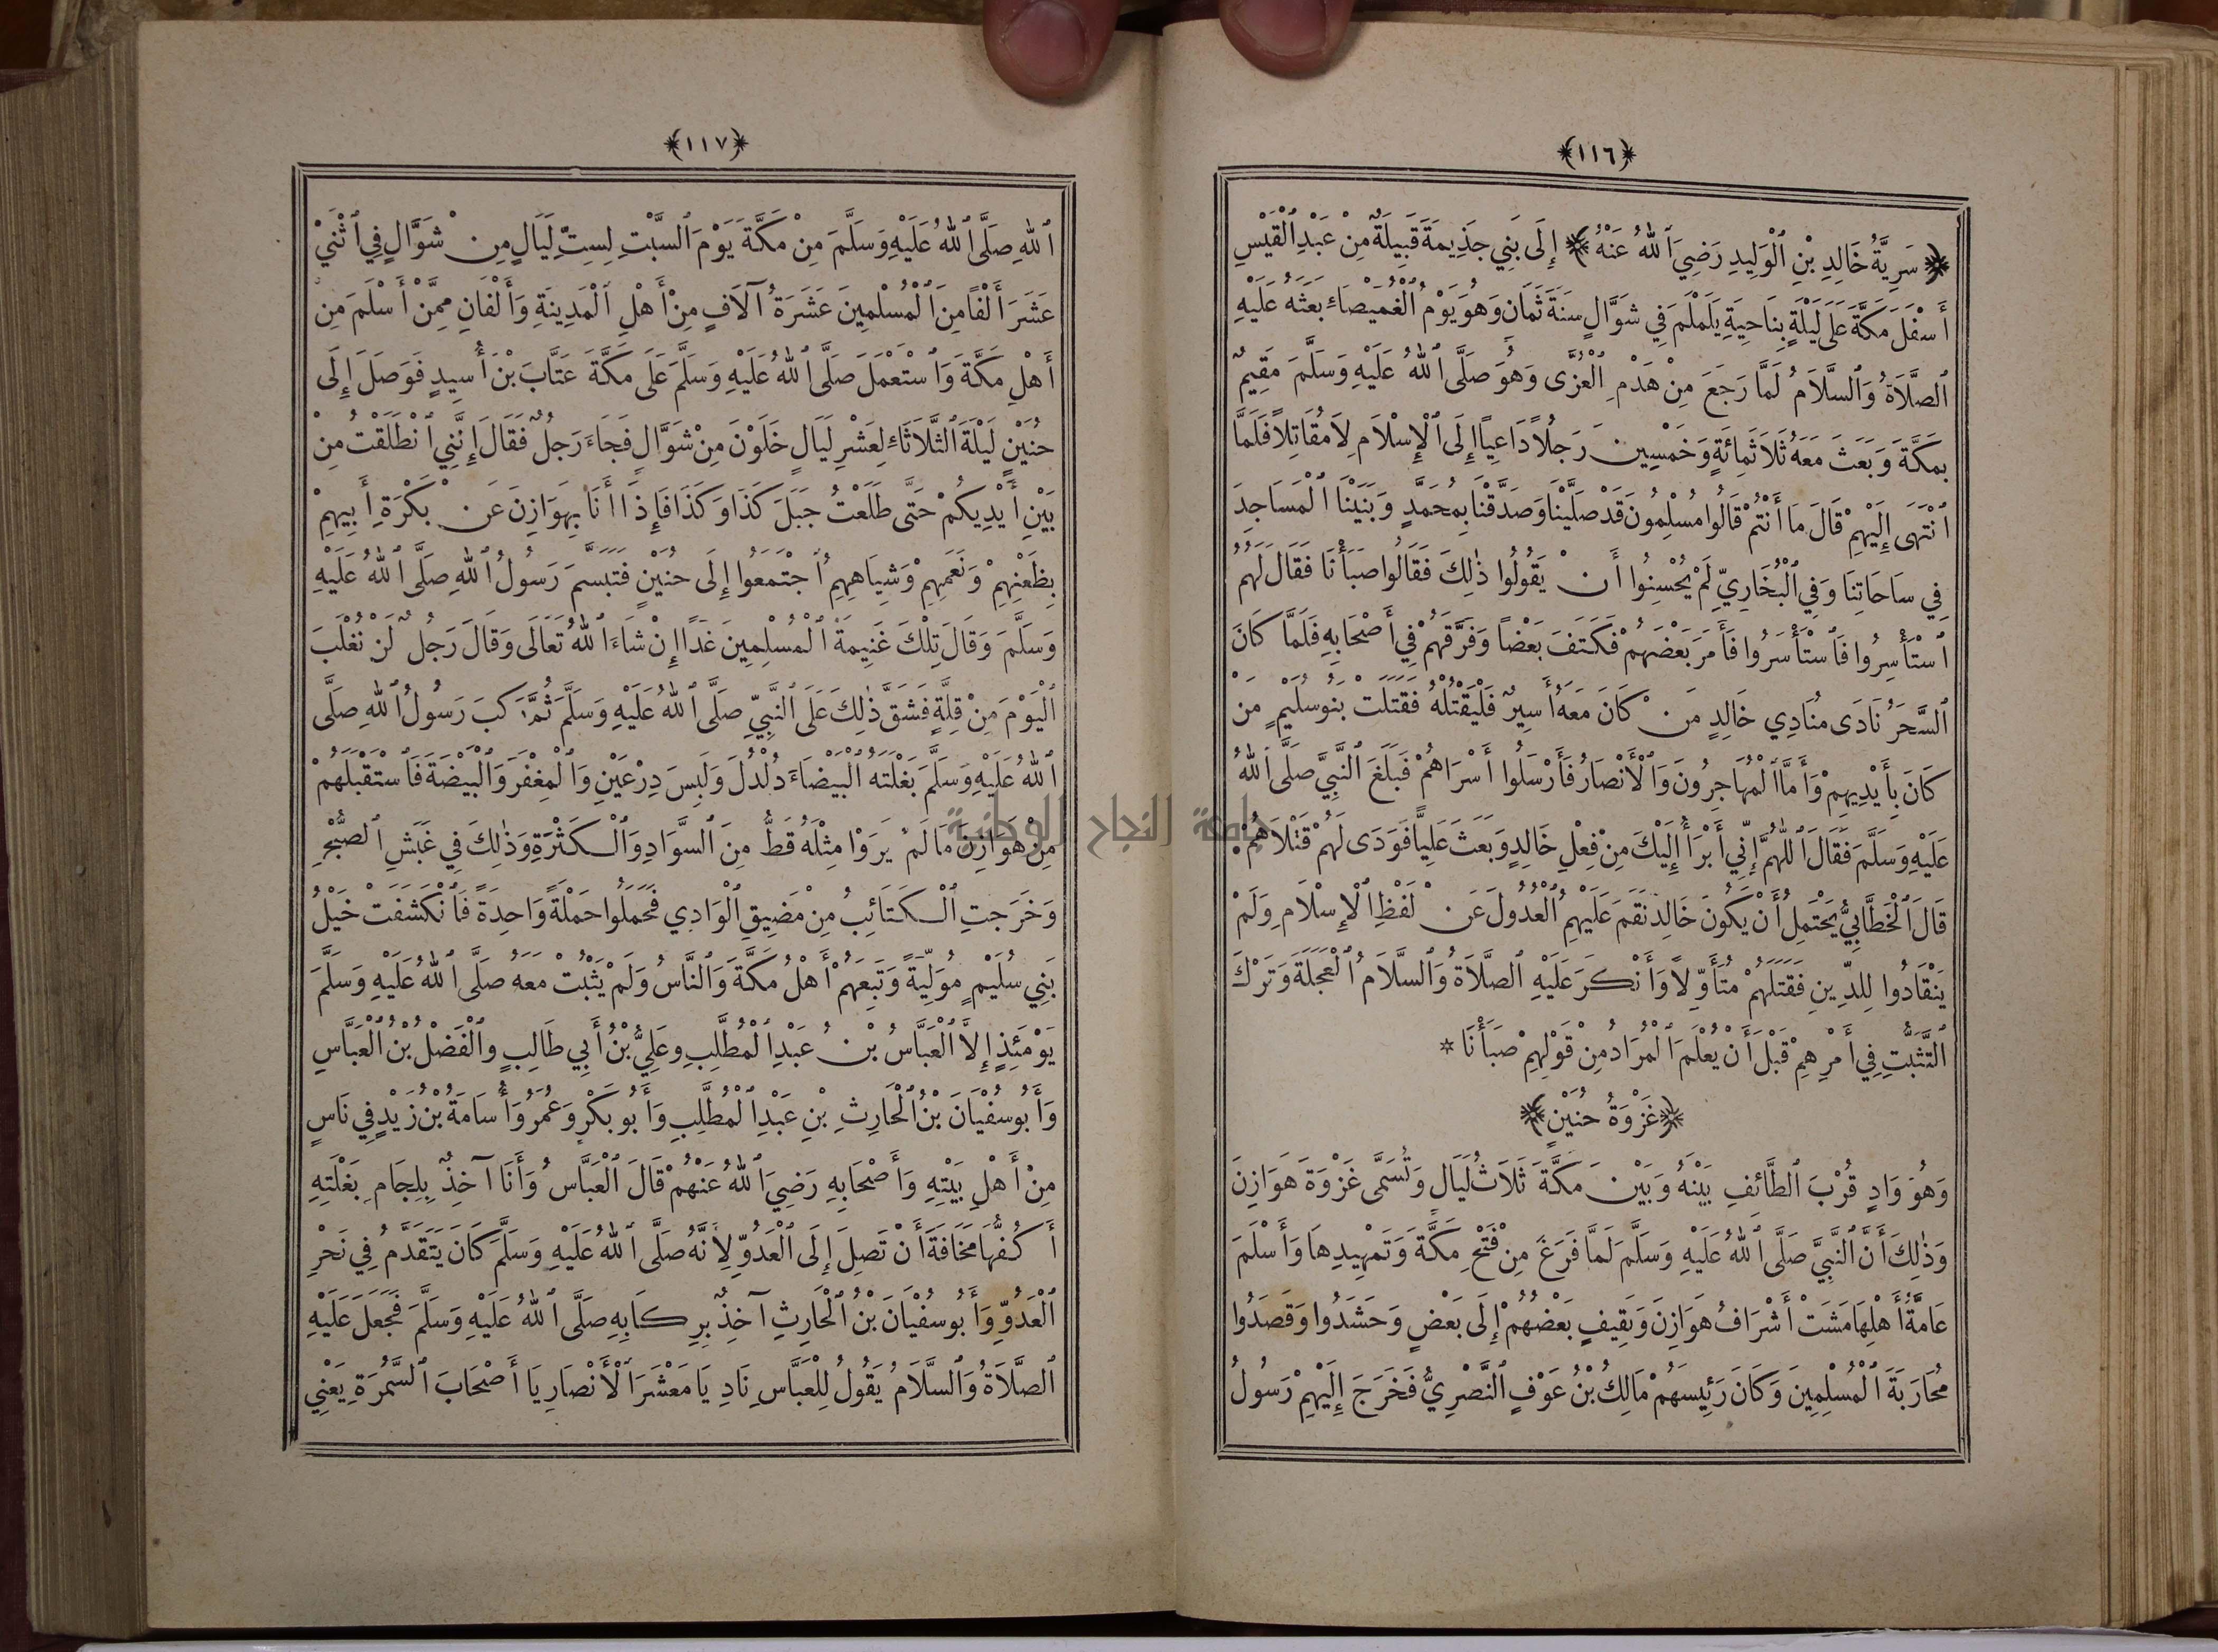 ﴿١١٦﴾
﴿سَرِيَّةُ خَالِدِ بْنِ ٱلْوَلِيدِ رَضِيَ ٱللهُ عَنْهُ﴾ إِلَى بَنِي جَذِيمَةَ قَبِيلَةٌ مِنْ عَبْدِ ٱلْقَيْسِ
أَسْفَلَ مَكَّةَ عَلَى لَيْلَةٍ بِنَاحِيَةِ يَلَمْلَمَ فِي شَوَّالٍ سَنَةَ ثَمَانٍ وَهُوَ يَوْمُ ٱلْغُمَيْصَاءِ بَعَثَهُ عَلَيْهِ
ٱلصَّلَاةُ وَٱلسَّلَامُ لَمَّا رَجَعَ مِنْ هَدْمِ ٱلْعُزَّى وَهُوَ صَلَّى ٱللهُ عَلَيْهِ وَسَلَّمَ مُقِيمٌ
بِمَكَّةَ وَبَعَثَ مَعَهُ ثَلَاثَمِائَةٍ وَخَمْسِينَ رَجُلًا دَاعِيًا إِلَى ٱلْإِسْلَامِ لَا مُقَاتِلًا فَلَمَّا
ٱنْتَهَى إِلَيْهِمْ قَالَ مَا أَنْتُمْ قَالُوا مُسْلِمُونَ قَدْ صَلَّيْنَا وَصَدَّقْنَا بِمُحَمَّدٍ وَبَنَيْنَا ٱلْمَسَاجِدَ
فِي سَاحَاتِنَا وَفِي ٱلْبُخَارِيِّ لَمْ يُحْسِنُوا أَنْ يَقُولُوا ذٰلِكَ فَقَالُوا صَبَأْنَا فَقَالَ لَهُمُ
ٱسْتَأْسِرُوا فَٱسْتَأْسَرُوا فَأَمَرَ بَعْضَهُمْ فَكَتَفَ بَعْضًا وَفَرَّقَهُمْ فِي أَصْحَابِهِ فَلَمَّا كَانَ
ٱلسَّحَرُ نَادَى مُنَادِي خَالِدٍ مَنْ كَانَ مَعَهُ أَسِيرٌ فَلْيَقْتُلْهُ فَقَتَلَتْ بَنُو سُلَيْمٍ مَنْ
كَانَ بِأَيْدِيهِمْ وَأَمَّا ٱلْمُهَاجِرُونَ وَٱلْأَنْصَارُ فَأَرْسَلُوا أَسْرَاهُمْ فَبَلَغَ ٱلنَّبِيَّ صَلَّى ٱللهُ
عَلَيْهِ وَسَلَّمَ فَقَالَ ٱللّٰهُمَّ إِنِّي أَبْرَأُ إِلَيْكَ مِنْ فِعْلِ خَالِدٍ وَبَعَثَ عَلِيًّا فَوَدَى لَهُمْ قَتْلَاهُمْ
قَالَ ٱلْخَطَّابِيُّ يَحْتَمِلُ أَنْ يَكُونَ خَالِدٌ نَقَمَ عَلَيْهِمُ ٱلْعُدُولَ عَنْ لَفْظِ ٱلْإِسْلَامِ وَلَمْ
يَنْقَادُوا لِلدِّينِ فَقَتَلَهُمْ مُتَأَوِّلًا وَأَنْكَرَ عَلَيْهِ ٱلصَّلَاةُ وَٱلسَّلَامُ ٱلْعَجَلَةَ وَتَرْكَ
ٱلتَّثَبُّتِ فِي أَمْرِهِمْ قَبْلَ أَنْ يُعْلَمَ ٱلْمُرَادُ مِنْ قَوْلِهِمْ صَبَأْنَا *
﴿غَزْوَةُ حُنَيْنٍ﴾
وَهُوَ وَادٍ قُرْبَ ٱلطَّائِفِ بَيْنَهُ وَبَيْنَ مَكَّةَ ثَلَاثُ لَيَالٍ وَتُسَمَّى غَزْوَةَ هَوَازِنَ
وَذٰلِكَ أَنَّ ٱلنَّبِيَّ صَلَّى ٱللهُ عَلَيْهِ وَسَلَّمَ لَمَّا فَرَغَ مِنْ فَتْحِ مَكَّةَ وَتَمْهِيدِهَا وَأَسْلَمَ
عَامَّةُ أَهْلِهَا مَشَتْ أَشْرَافُ هَوَازِنَ وَثَقِيفٍ بَعْضُهُمْ إِلَى بَعْضٍ وَحَشَدُوا وَقَصَدُوا
مُحَارَبَةَ ٱلْمُسْلِمِينَ وَكَانَ رَئِيسَهُمْ مَالِكُ بْنُ عَوْفٍ ٱلنَّصْرِيُّ فَخَرَجَ إِلَيْهِمْ رَسُولُ
﴿١١٧﴾
ٱللهِ صَلَّى ٱللهُ عَلَيْهِ وَسَلَّمَ مِنْ مَكَّةَ يَوْمَ ٱلسَّبْتِ لِسِتِّ لَيَالٍ مِنْ شَوَّالٍ فِي ٱثْنَيْ
عَشَرَ أَلْفًا مِنَ ٱلْمُسْلِمِينَ عَشَرَةُ آلَافٍ مِنْ أَهْلِ ٱلْمَدِينَةِ وَأَلْفَانِ مِمَّنْ أَسْلَمَ مِنْ
أَهْلِ مَكَّةَ وَٱسْتَعْمَلَ صَلَّى ٱللهُ عَلَيْهِ وَسَلَّمَ عَلَى مَكَّةَ عَتَّابَ بْنَ أُسِيدٍ فَوَصَلَ إِلَى
حُنَيْنٍ لَيْلَةَ ٱلثَّلَاثَاءِ لِعَشْرِ لَيَالٍ خَلَوْنَ مِنْ شَوَّالٍ فَجَاءَ رَجُلٌ فَقَالَ إِنَّنِي ٱنْطَلَقْتُ مِنْ
بَيْنِ أَيْدِيكُمْ حَتَّى طَلَعْتُ جَبَلَ كَذَا وَكَذَا فَإِذَا أَنَا بِهَوَازِنَ عَنْ بَكْرَةِ أَبِيهِمْ
بِظُعُنِهِمْ وَنَعَمِهِمْ وَشِيَاهِهِمُ ٱجْتَمَعُوا إِلَى حُنَيْنٍ فَتَبَسَّمَ رَسُولُ ٱللهِ صَلَّى ٱللهُ عَلَيْهِ
وَسَلَّمَ وَقَالَ تِلْكَ غَنِيمَةُ ٱلْمُسْلِمِينَ غَدًا إِنْ شَاءَ ٱللهُ تَعَالَى وَقَالَ رَجُلٌ لَنْ نُغْلَبَ
ٱلْيَوْمَ مِنْ قِلَّةٍ فَشَقَّ ذٰلِكَ عَلَى ٱلنَّبِيِّ صَلَّى ٱللهُ عَلَيْهِ وَسَلَّمَ ثُمَّ رَكِبَ رَسُولُ ٱللهِ صَلَّى
ٱللهُ عَلَيْهِ وَسَلَّمَ بَغْلَتَهُ ٱلْبَيْضَاءَ دُلْدُلَ وَلَبِسَ دِرْعَيْنِ وَٱلْمِغْفَرَ وَٱلْبَيْضَةَ فَٱسْتَقْبَلَهُمْ
مِنْ هَوَازِنَ مَا لَمْ يَرَوْا مِثْلَهُ قَطُّ مِنَ ٱلسَّوَادِ وَٱلْكَثْرَةِ وَذٰلِكَ فِي غَبَشِ ٱلصُّبْحِ
وَخَرَجَتِ ٱلْكَتَائِبُ مِنْ مَضِيقِ ٱلْوَادِي فَحَمَلُوا حَمْلَةً وَاحِدَةً فَٱنْكَشَفَتْ خَيْلُ
بَنِي سُلَيْمٍ مُوَلِّيَةً وَتَبِعَهُمْ أَهْلُ مَكَّةَ وَٱلنَّاسُ وَلَمْ يَثْبُتْ مَعَهُ صَلَّى ٱللهُ عَلَيْهِ وَسَلَّمَ
يَوْمَئِذٍ إِلَّا ٱلْعَبَّاسُ بْنُ عَبْدِ ٱلْمُطَّلِبِ وعَلِيُّ بْنُ أَبِي طَالِبٍ وٱلْفَضْلُ بْنُ ٱلْعَبَّاسِ
وَأَبُو سُفْيَانَ بْنُ ٱلْحَارِثِ بْنِ عَبْدِ ٱلْمُطَّلِبِ وَأَبُو بَكْرٍ وَعُمَرُ وَأُسَامَةُ بْنُ زَيْدٍ فِي نَاسٍ
مِنْ أَهْلِ بَيْتِهِ وَأَصْحَابِهِ رَضِيَ ٱللهُ عَنْهُمْ قَالَ ٱلْعَبَّاسُ وَأَنَا آخِذٌ بِلِجَامِ بَغْلَتِهِ
أَكُفُّهَا مَخَافَةَ أَنْ تَصِلَ إِلَى ٱلْعَدُوِّ لِأَنَّهُ صَلَّى ٱللهُ عَلَيْهِ وَسَلَّمَ كَانَ يَتَقَدَّمُ فِي نَحْرِ
ٱلْعَدُوِّ وَأَبُو سُفْيَانَ بْنُ ٱلْحَارِثِ آخِذٌ بِرِكَابِهِ صَلَّى ٱللهُ عَلَيْهِ وَسَلَّمَ فَجَعَلَ عَلَيْهِ
ٱلصَّلَاةُ وَٱلسَّلَامُ يَقُولُ لِلْعَبَّاسِ نَادِ يَا مَعْشَرَ ٱلْأَنْصَارِ يَا أَصْحَابَ ٱلسَّمُرَةِ يَعْنِي
جامعة النجاح الوطنية